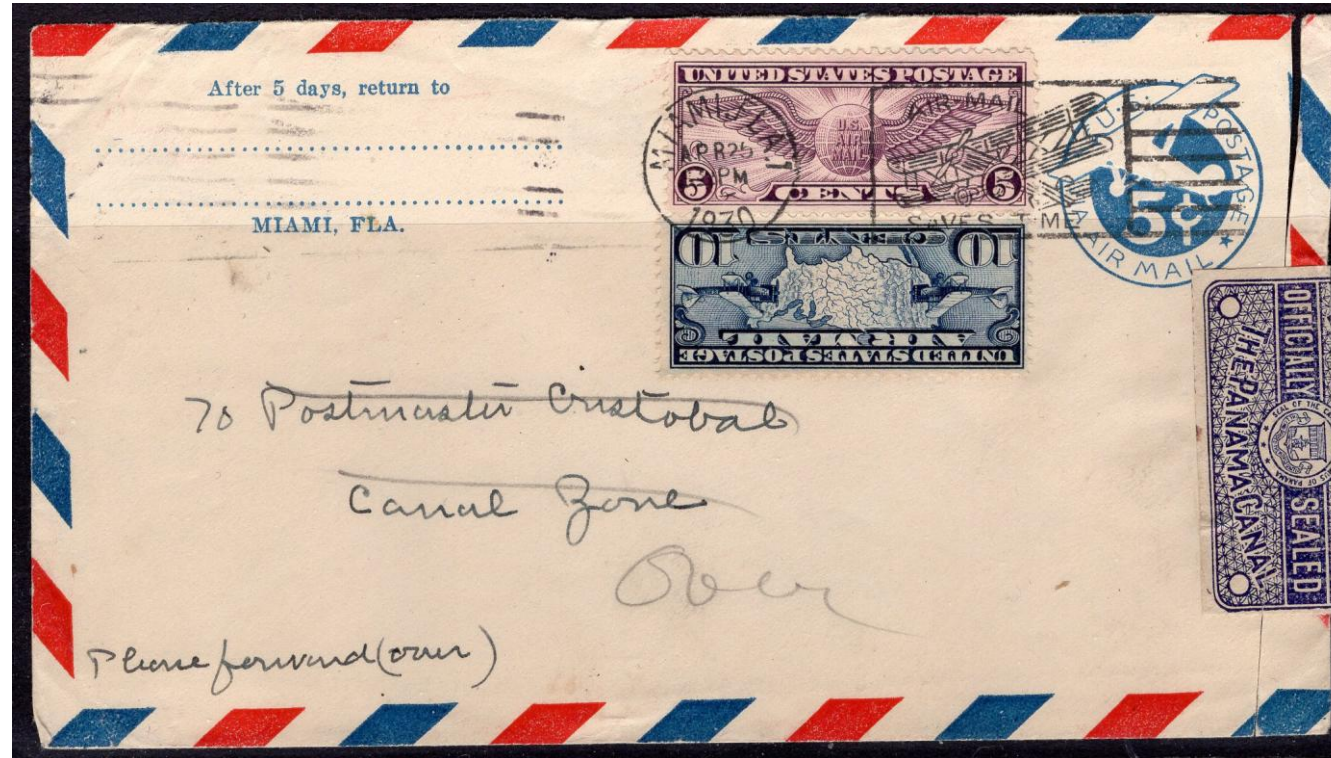 After 5 days, return to
MIAMI, FLA.
UNITED STATES POSTAGE
U.S.
AIR
MAIL
5 CENTS 5
MIAMI, FLA.
APR 25
PM
1930
AIR MAIL
SAVES TIME
10 CENTS 10
AIR MAIL
UNITED STATES POSTAGE
U.S. POSTAGE
5
AIR MAIL
OFFICIALLY SEALED
THE PANAMA CANAL
SEAL OF THE
OF PANAMA
To Postmaster Cristobal
Canal Zone
Over
Please forward (over)